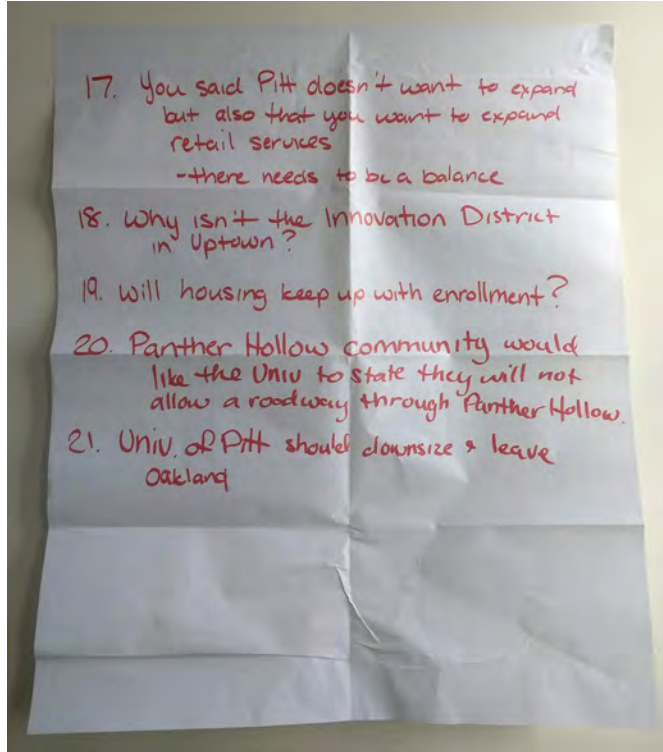 17. You said Pitt doesn't want to expand
but also that you want to expand
retail services
-there needs to be a balance
18. Why isn't the Innovation District
in Uptown?
19. Will housing keep up with enrollment?
20. Panther Hollow community would
like the Univ to state they will not
allow a roadway through Panther Hollow.
21. Univ. of Pitt should downsize & leave
Oakland